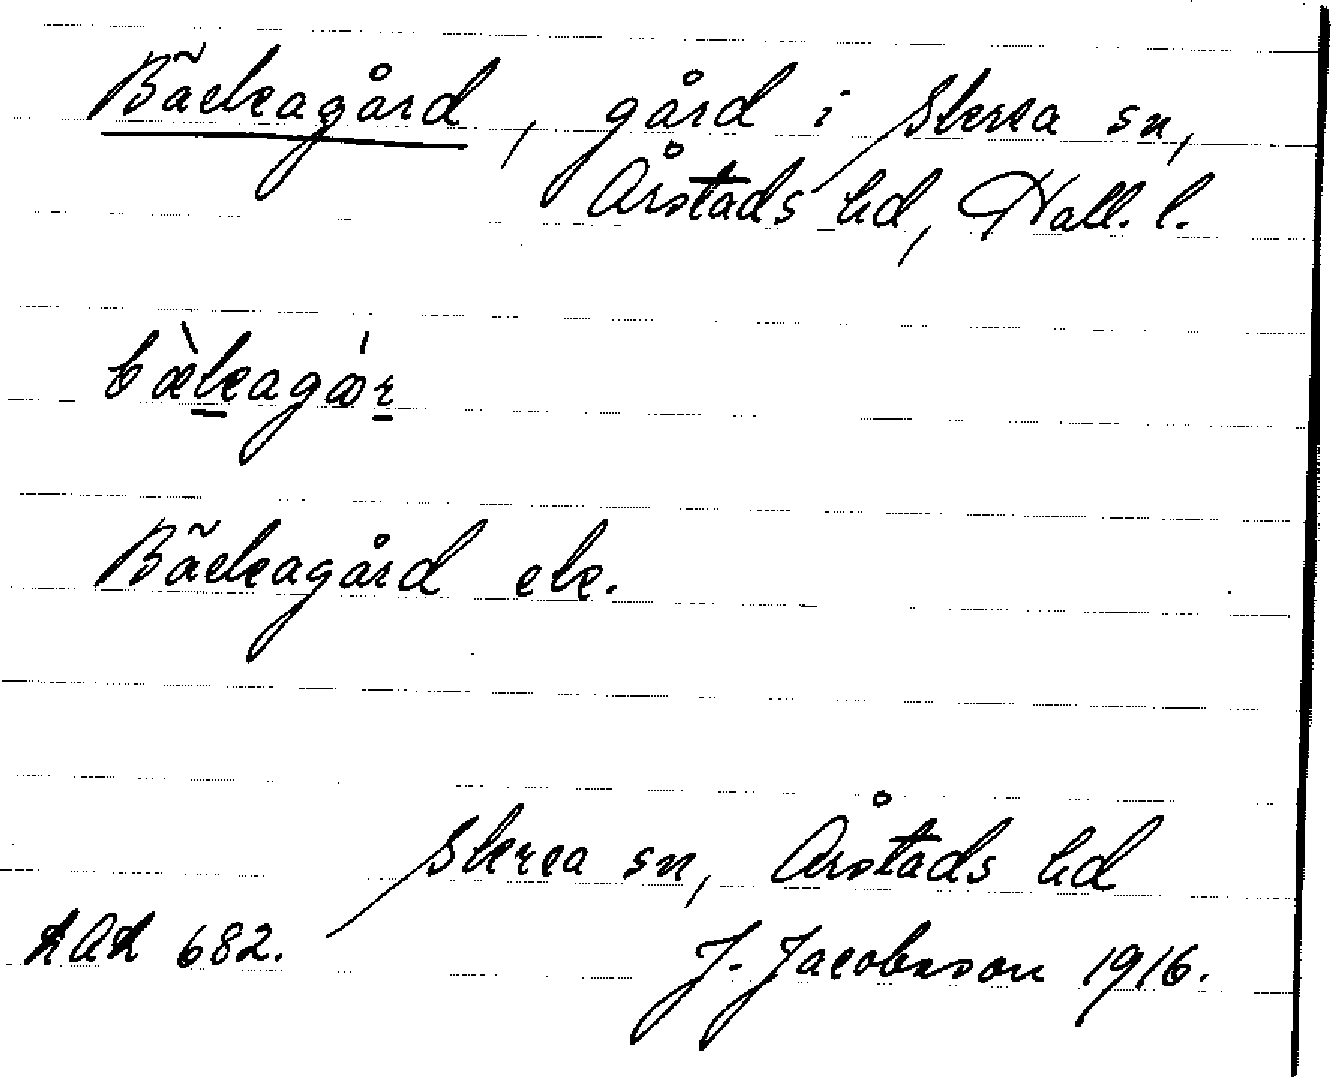 Bäckagård, gård i Skrea sn,
Årstads hd, Hall. l.
bæ̀kagá̊r
Bäckagård etc.
Skrea sn, Årstads hd
682.
J. Jacobsson 1916.